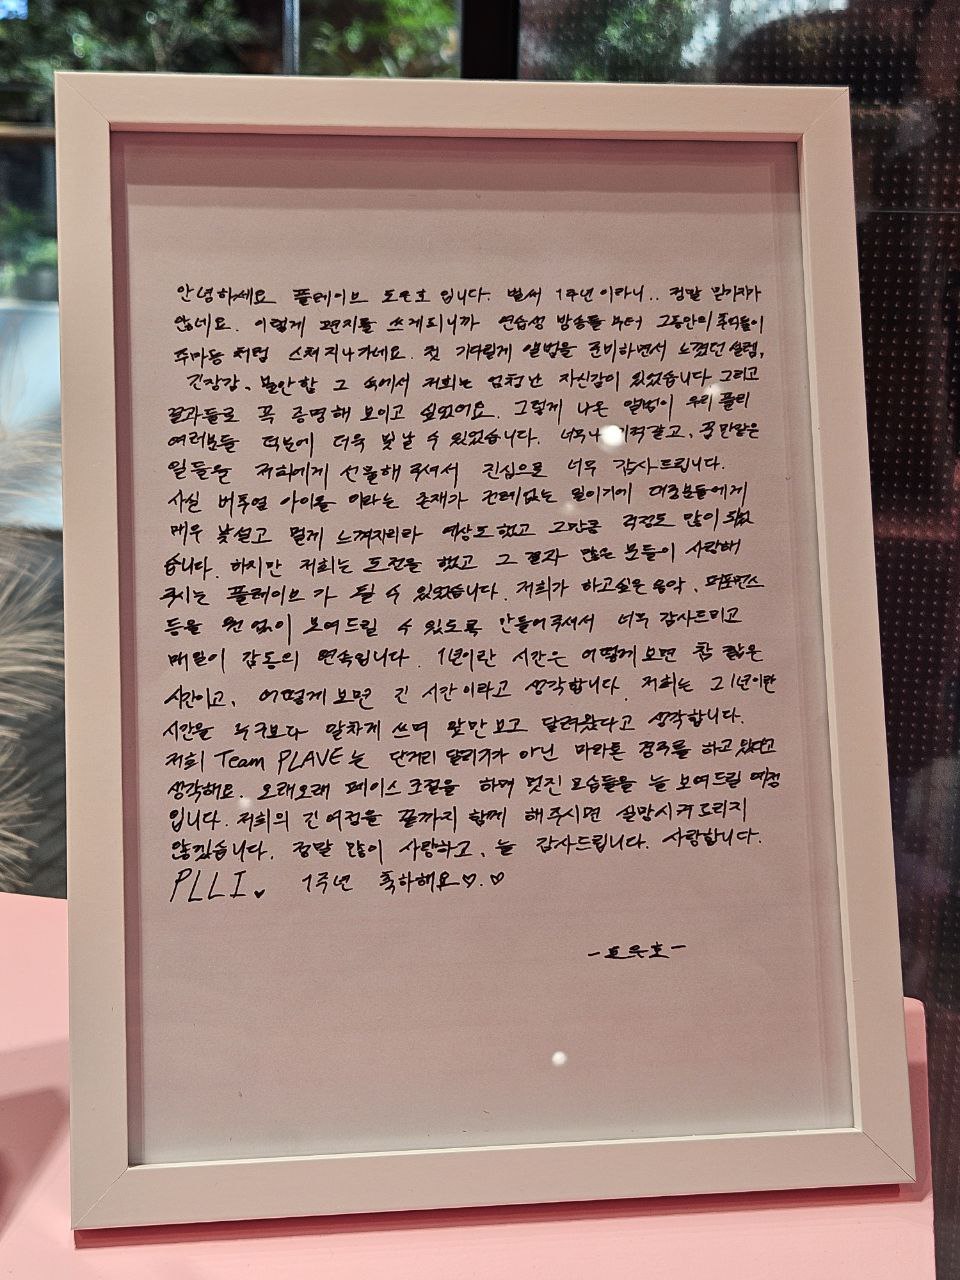 안녕하세요 플레이브 도은호 입니다. 벌써 1주년 이라니.. 정말 믿기지가
않네요. 이렇게 편지를 쓰게되니까 연습생 방송들 부터 그동안의 추억들이
주마등 처럼 스쳐 지나가네요. 첫 기다릴게 앨범을 준비하면서 느꼈던 설렘,
긴장감, 불안함 그 속에서 저희는 엄청난 자신감이 있었습니다 그리고
결과들로 꼭 증명해 보이고 싶었어요. 그렇게 나온 앨범이 우리 플리
여러분들 덕분에 더욱 빛날 수 있었습니다. 너무나 기적같고, 꿈만같은
일들을 저희에게 선물해 주셔서 진심으로 너무 감사드립니다.
사실 버추얼 아이돌 이라는 존재가 전례없는 일이기에 대중분들에게
매우 낯설고 멀게 느껴지리라 예상도 했고 그만큼 걱정도 많이 되었
습니다. 하지만 저희는 도전을 했고 그 결과 많은 분들이 사랑해
주시는 플레이브가 될 수 있었습니다. 저희가 하고싶은 음악, 퍼포먼스
등을 원 없이 보여드릴 수 있도록 만들어주셔서 너무 감사드리고
매일이 감동의 연속입니다. 1년이란 시간은 어떻게 보면 참 짧은
시간이고, 어떻게 보면 긴 시간이라고 생각합니다. 저희는 그 1년이란
시간을 누구보다 알차게 쓰며 앞만 보고 달려왔다고 생각합니다.
저희 Team PLAVE는 단거리 달리기가 아닌 마라톤 경주를 하고 있다고
생각해요. 오래오래 페이스 조절을 하며 멋진 모습들을 늘 보여드릴 예정
입니다. 저희의 긴 여정을 끝까지 함께 해주시면 실망시켜드리지
않겠습니다. 정말 많이 사랑하고, 늘 감사드립니다. 사랑합니다.
PLLI♥ 1주년 축하해요♡.♡
-도은호-